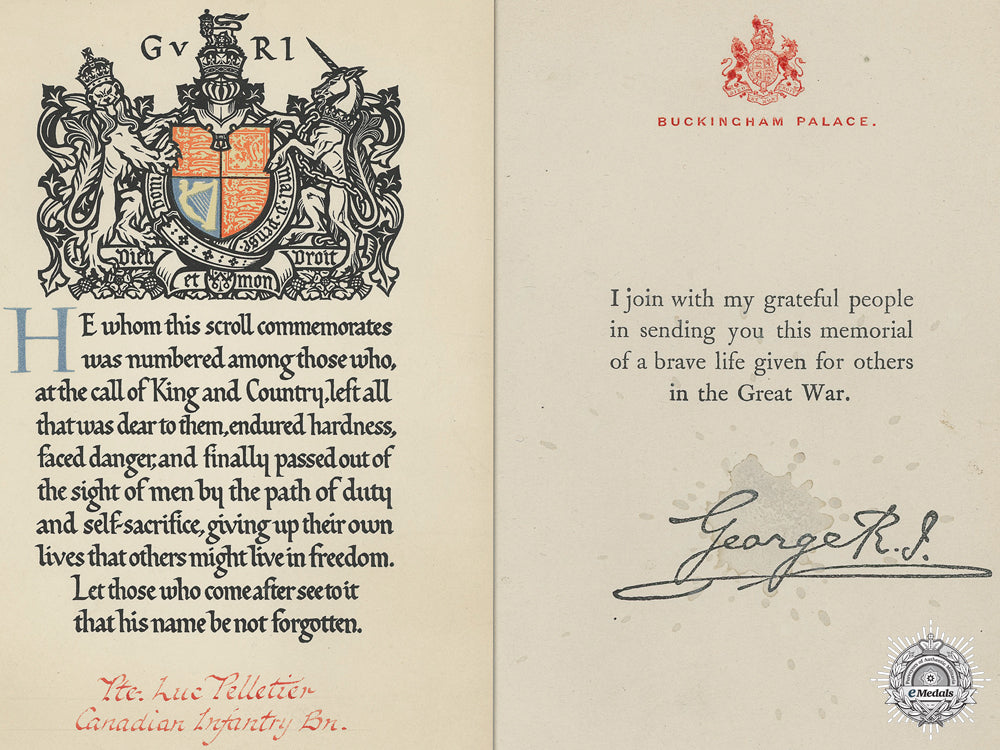 GV RI
Honi
mal·y·pense
Dieu et mon Droit
HE whom this scroll commemorates
was numbered among those who,
at the call of King and Country, left all
that was dear to them, endured hardness,
faced danger, and finally passed out of
the sight of men by the path of duty
and self-sacrifice, giving up their own
lives that others might live in freedom.
Let those who come after see to it
that his name be not forgotten.
Pte. Luc Pelletier
Canadian Infantry Bn.
BUCKINGHAM PALACE.
I join with my grateful people
in sending you this memorial
of a brave life given for others
in the Great War.
George R.I.
eMedals